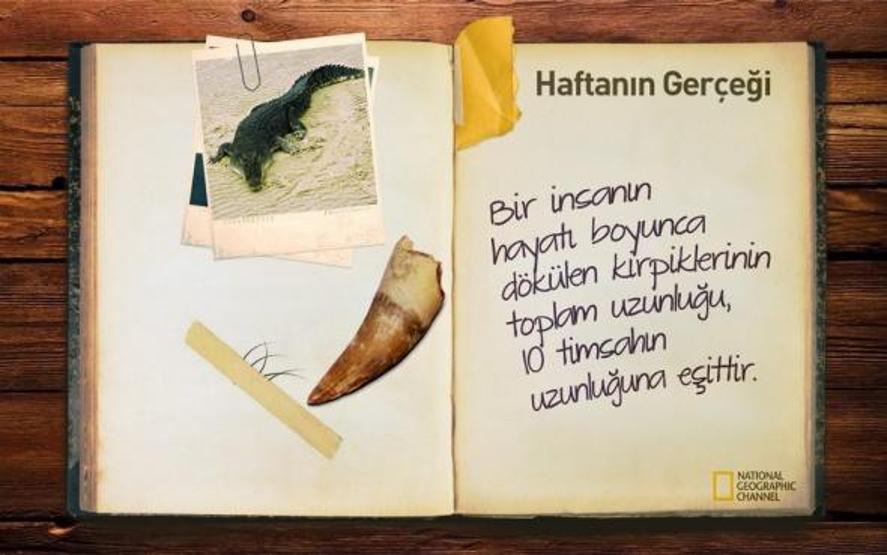 Haftanın Gerçeği
Bir insanın
hayatı boyunca
dökülen kirpiklerinin
toplam uzunluğu,
10 timsahın
uzunluğuna eşittir.
NATIONAL
GEOGRAPHIC
CHANNEL